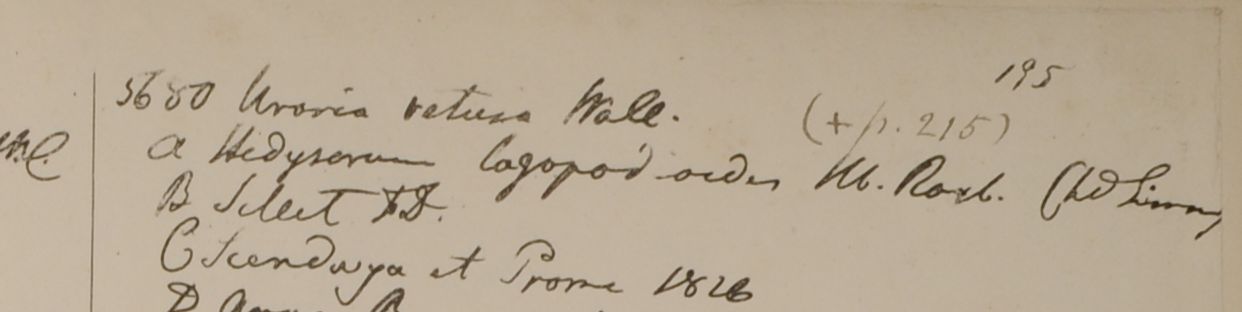 195
5680 Uraria retusa Wall. (+ p. 215)
a Hedysarum lagopodioides Hb. Roxb.
B Sillet
C Seendwya et Prome 1826
D